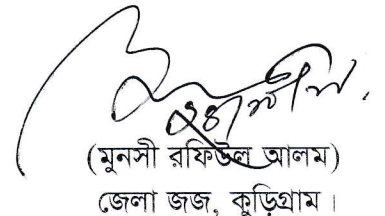 (মুনসী রফিউল আলম)
জেলা জজ, কুড়িগ্রাম।